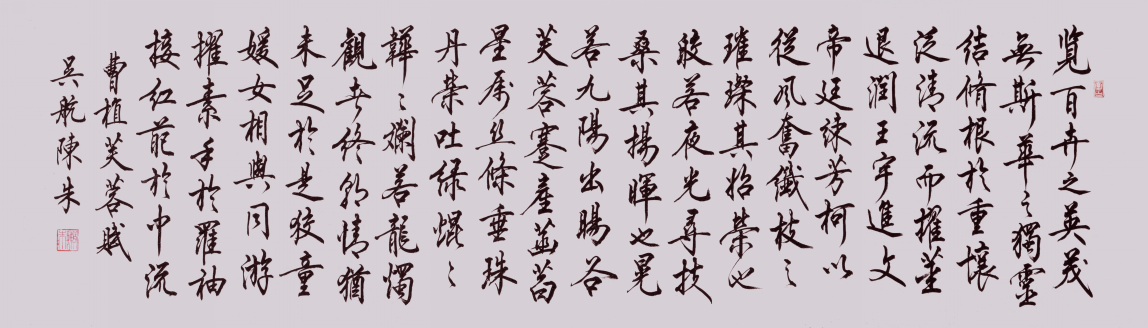 览百卉之英茂
無斯華之獨靈
結脩根於重壤
泛清流而擢莖
退潤王宇進文
帝廷竦芳柯以
從風奮纖枝之
璀璨其始榮也
皎若夜光尋扶
桑其揚暉也晃
若九陽出暘谷
芙蓉蹇產菡萏
星属丝條垂珠
丹榮吐绿焜々
韡々爛若龍燭
觀者终朝情猶
未足於是狡童
媛女相與同游
擢素手於羅袖
接红葩於中流
曹植芙蓉賦
吴航陳朱